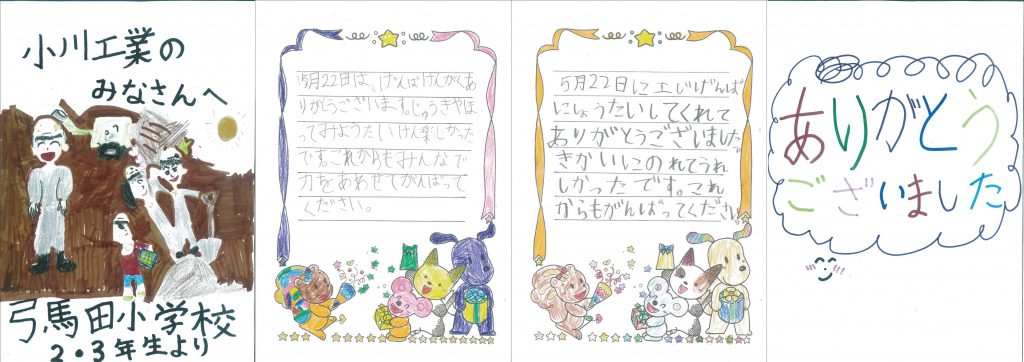 小川工業の
みなさんへ
弓馬田小学校
2・3年生より
5月22日は、げんばけんがくあ
りがとうございます。じゅうきやほ
ってみようたいけん楽しかった
です。これからもみんなで
力をあわせてがんばって
ください。
5月22日に工じげんば
にしょうたいしてくれて
ありがとうございました。
きかいにのれてうれ
しかったです。これ
からもがんばってください。
ありがとう
ございました